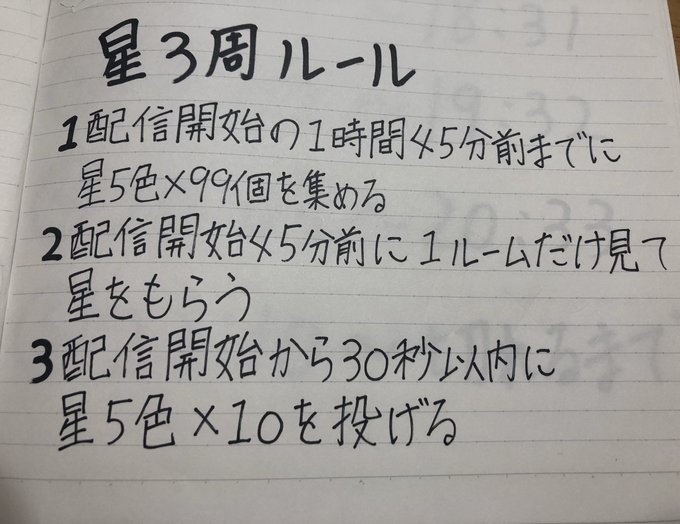 星3周ルール
1配信開始の1時間45分前までに
星5色×99個を集める
2配信開始45分前に1ルームだけ見て
星をもらう
3配信開始から30秒以内に
星5色×10を投げる
18:31
19:32
20:33